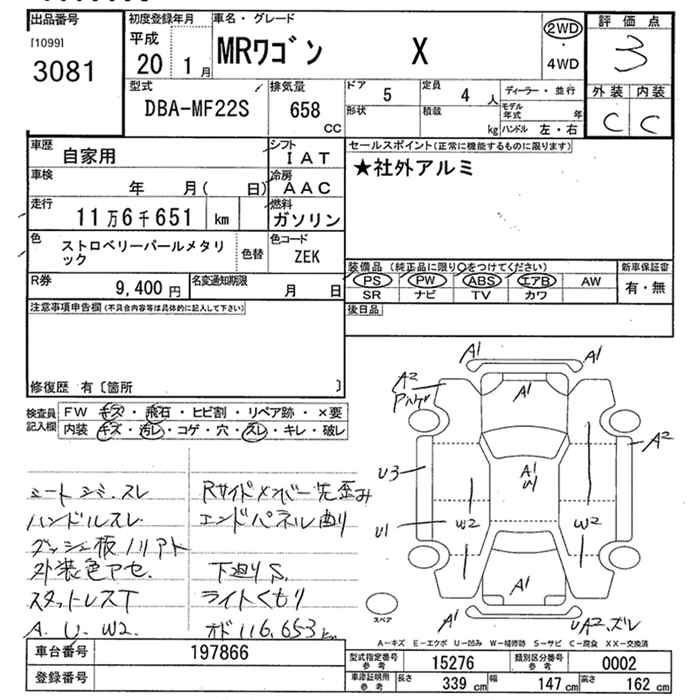 出品番号 初度登録年月 車名・グレード 評価点
[1099] 平成 MRワゴン X 2WD 3
3081 20 1月 ・ 4WD
型式 排気量 ドア 5 定員 4人 ディーラー・並行 外装 内装
DBA-MF22S 658 cc 形状 積載 kg モデル年式 年 C C
ハンドル 左・右
車歴 自家用 シフト IAT セールスポイント(正常に機能するものに限ります)
車検 年 月( 日) 冷房 AAC ★社外アルミ
走行 11万6千651 km 燃料 ガソリン
色 ストロベリーパールメタリック 色替 色コード ZEK
装備品(純正品に限り○をつけてください) 新車保証書
R券 9,400円 名変通知期限 月 日 PS PW ABS エアB AW 有・無
SR ナビ TV カワ
注意事項申告欄(不具合内容等は具体的に記入して下さい) 後日品
修復歴 有〔箇所 〕
検査員 FW キズ・飛石・ヒビ割・リペア跡・×要
記入欄 内装 キズ・汚レ・コゲ・穴・スレ・キレ・破レ
A1 A1
A2 A1
U3 A1 W A2
U1 W2 W2
A1
A1 UA2.ズレ
シートシミ.スレ Rサイドメンバー先歪み
ハンドルスレ エンドパネル曲り
ダッシュ板ノリアト
外装色アセ. 下廻りS.
スタットレスT ライトくもり
A.U.W2. オド116,653k
スペア
A−キズ E−エクボ U−凹み W−補修跡 S−サビ C−腐食 XX−交換済
車台番号 197866 型式指定番号参考 15276 類別区分番号参考 0002
登録番号 車庫証明用参考 長さ 339 cm 幅 147 cm 高さ 162 cm